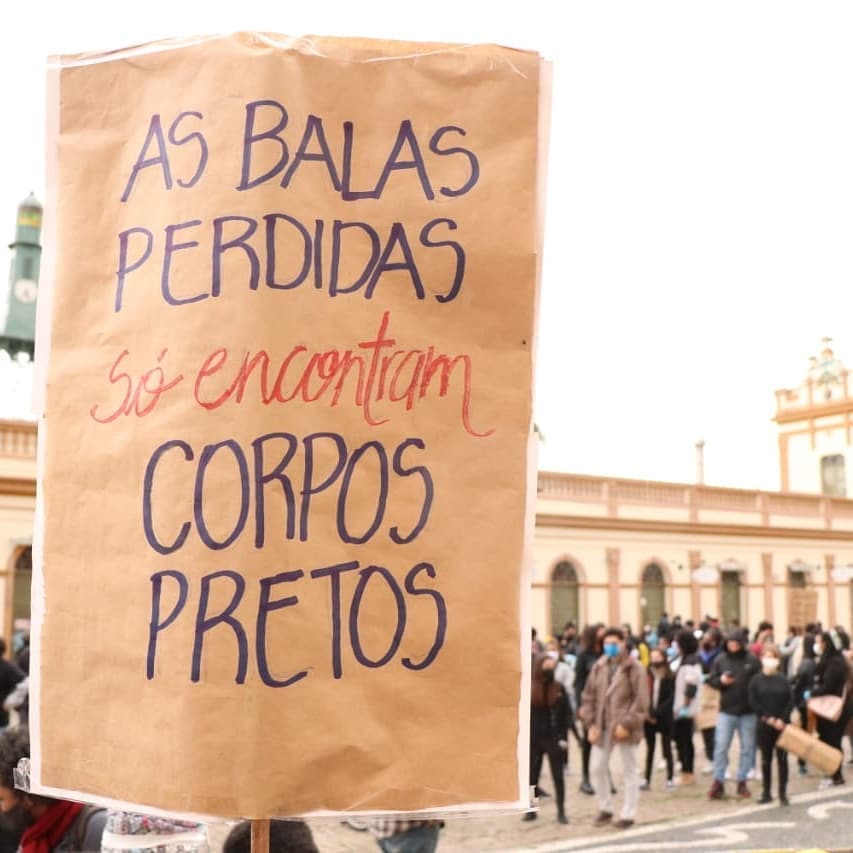 AS BALAS
PERDIDAS
só encontram
CORPOS
PRETOS